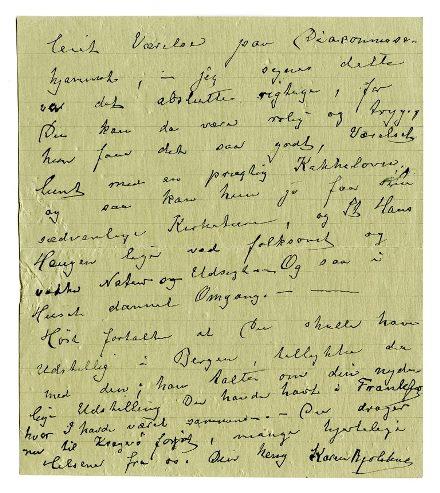 leiet Værelse paa Diaconnisse-
hjemmet, – jeg synes dette
var det absolutte rigtige, for
Du kan da være rolig og trygg,
hun faar det saa godt, Værelset
lunt med en prægtig Kakkelovn,
og saa kan hun jo faa sin
sædvanlige Kirketur, og St Hans
Haugen lige ved folksomt og
vakker Natur og Udsigten. Og saa i
Huset dannet Omgang. –
Höst fortalte at Du skulle have
Udstilling i Bergen, tillykke da
med den; han talte om din nyde-
lige Udstilling Du havde havt i Frankfurt
hvor I havde været sammen. – Du drager
nu til Kragerö forstod, mange hjertelige
Hilsener fra os. Din heng Karen Bjølstad